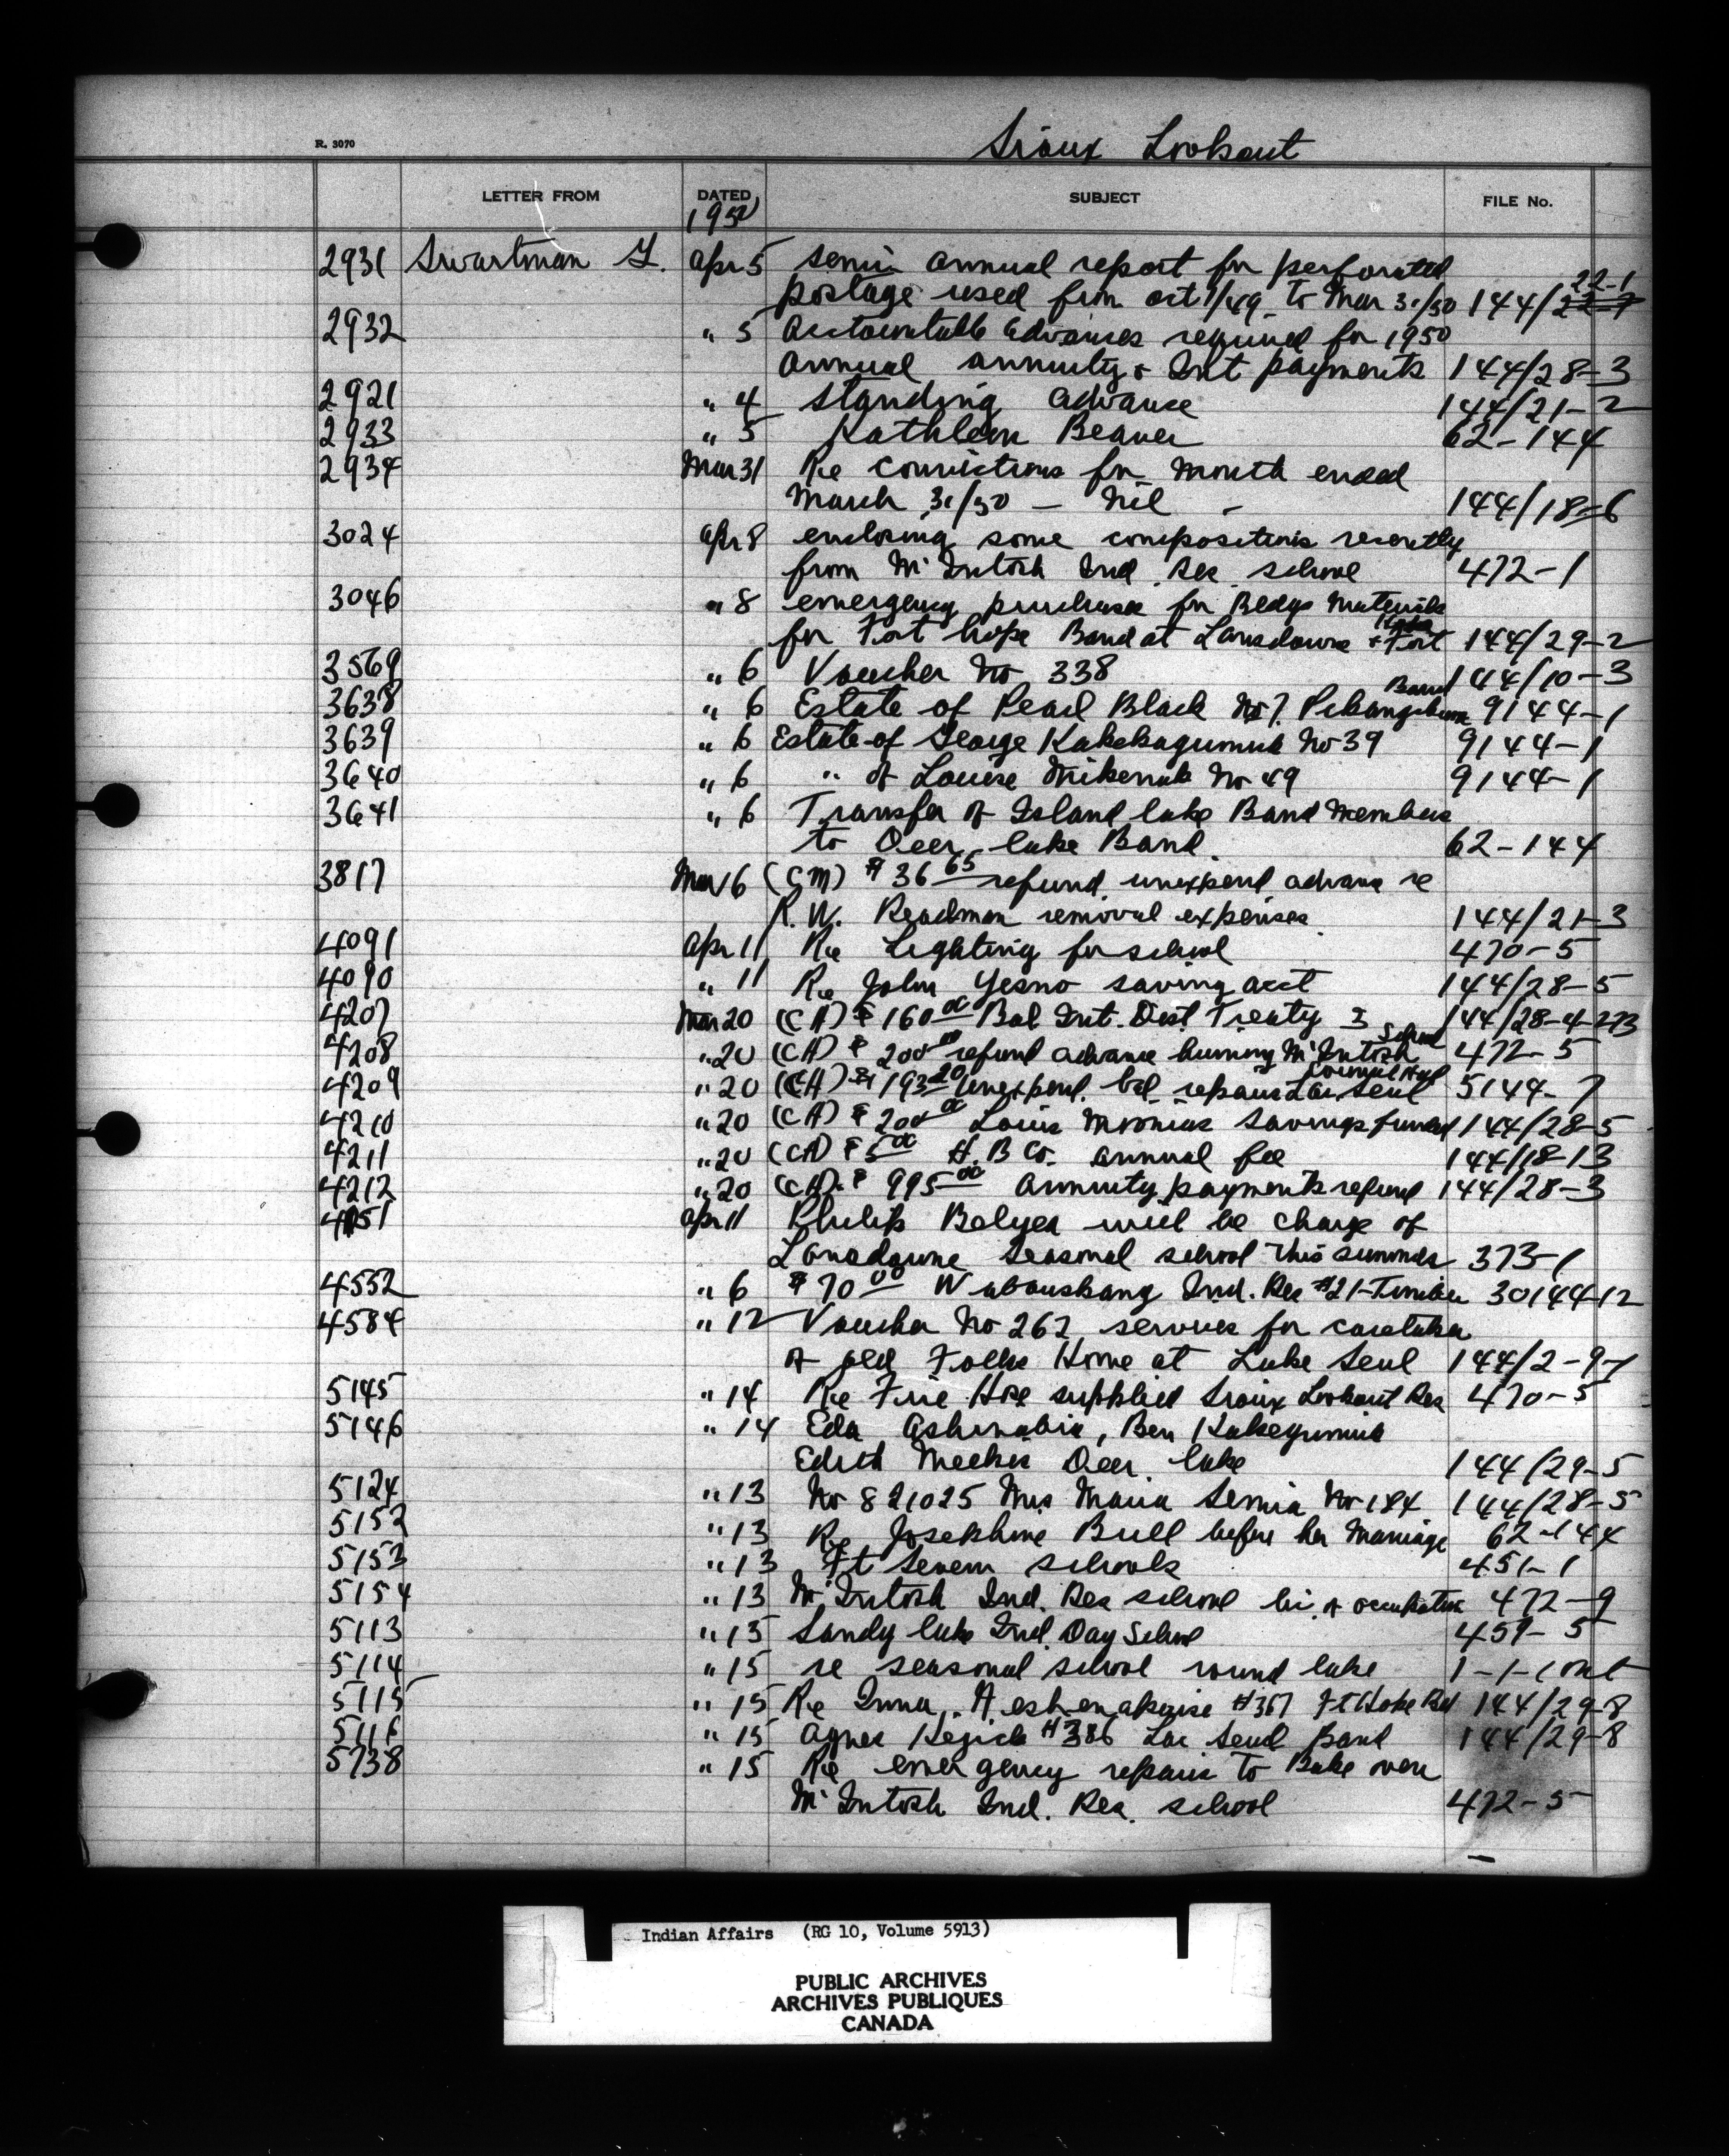 Sioux Lookout
R. 3070
LETTER FROM DATED SUBJECT FILE No.
1950
2931 Swartman G. Apr 5 Semi annual report for perforated
postage used from Oct 1/49 to Mar 31/50 144/22-1
2932 " 5 Accountable Advances required for 1950
Annual annuity & Int payments 144/28-3
2921 " 4 Standing advance 144/21-2
2933 " 5 Kathleen Beaver 62-144
2934 Mar 31 Re Convictions for month ended
March 31/50 — Nil - 144/18-6
3024 Apr 8 enclosing some compositions recently
from McIntosh Ind. Res. school 472-1
3046 " 8 emergency purchases for Bldgs Materials
for Fort hope Band at Lansdowne & Fort Hope 144/29-2
3569 " 6 Voucher No 338 144/10-3
3638 " 6 Estate of Pearl Black No 7. Pikangikum Band 9144-1
3639 " 6 Estate of George Kakekagumick No 39 9144-1
3640 " 6 " of Louise Mikenak No 49 9144-1
3641 " 6 Transfer of Island lake Band Members
to Deer lake Band 62-144
3817 Mar 16 (CM) $36 65 refund unexpend advance re
R. W. Readman removal expenses 144/21-3
4091 Apr 11 Re Lighting for school 470-5
4090 " 11 Re John Yesno saving acct 144/28-5
4207 Mar 20 (CA) $160 00 Bal Int. Dist Treaty 3 144/28-4-273
4208 " 20 (CA) $200 00 refund advance McIntosh School 472-5
4209 " 20 (CA) $193 20 Unexpend. bal. repairs Lac Seul Council Hall 5144-7
4210 " 20 (CA) $200 00 Louis Moonias Savings funded 144/28-5
4211 " 20 (CA) $5 00 H. B Co. annual fee 144/18-13
4212 " 20 (CA). $995 00 Annuity payments refund 144/28-3
4151 Apr 11 Philip Belyea will be charge of
Lansdowne Seasonal school this summer 373-1
4552 " 6 $70 00 Wabauskang Ind. Res #21-Timber 30144-12
4584 " 12 Voucher No 262 services for caretaker
of old Folks Home at Lake Seul 144/2-9-1
5145 " 14 Re Fire Hose supplied Sioux Lookout Res 470-5
5146 " 14 Eda Ashinabie, Ben Kakegumick
Edith Meekis Deer lake 144/29-5
5124 " 13 No 821025 Mrs Maria Semia No 184 144/28-5
5152 " 13 Re Josephine Bull before her Marriage 62-144
5153 " 13 Ft Severn schools 451-1
5154 " 13 McIntosh Ind. Res school of occupation 472-9
5113 " 15 Sandy lake Ind. Day School 459-5
5114 " 15 re seasonal school round lake 1-1-1 Ont
5115 " 15 Re #367 Ft Hope Bd 144/29-8
5116 " 15 Agnes Kejick #386 Lac Seul Band 144/29-8
5738 " 15 Re emergency repairs to Bake oven
McIntosh Ind. Res. school 472-5
Indian Affairs (RG 10, Volume 5913)
PUBLIC ARCHIVES
ARCHIVES PUBLIQUES
CANADA